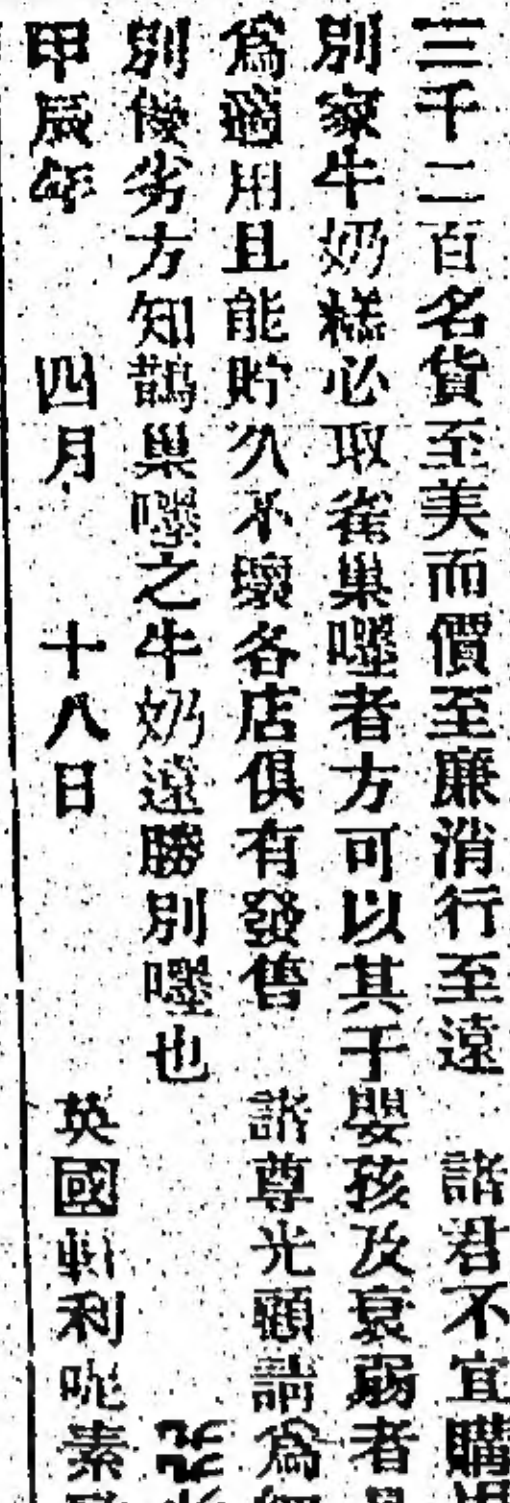 三千二百名貨至美而價至廉消行至遠 諸君不宜購
別家牛奶糕必取雀巢嘜者方可以其于嬰孩及衰弱者
為適用且能貯久不壞各店俱有發售 諸尊光顧請為
別優劣方知鵲巢嘜之牛奶遠勝別嘜也
甲辰年 四月 十八日 英國 利呢素